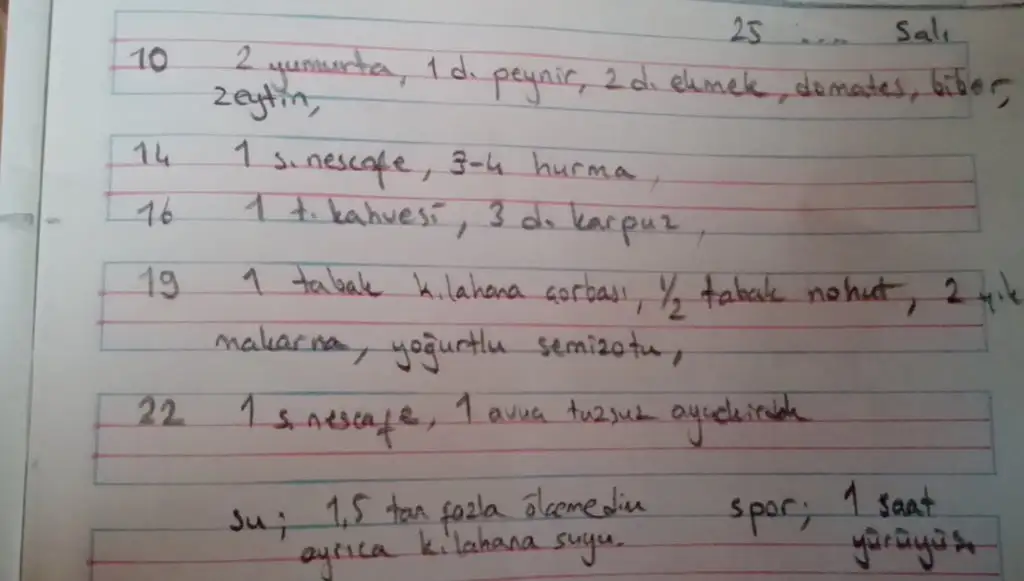 25 .... Salı
10 2 yumurta, 1 d. peynir, 2 d. ekmek, domates, biber,
zeytin,
14 1 s. nescafe, 3-4 hurma,
16 1 t. kahvesi, 3 d. karpuz,
19 1 tabak k.lahana çorbası, 1/2 tabak nohut, 2
makarna, yoğurtlu semizotu,
22 1 s. nescafe, 1 avuç tuzsuz ayçekirdek
su; 1,5 tan fazla ölçemedim spor; 1 saat
ayrıca k.lahana suyu. yürüyüş